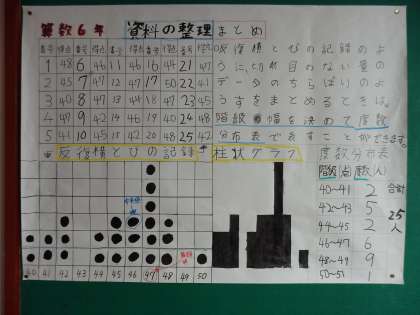 算数6年 資料の整理 まとめ
番号 得点 番号 得点 番号 得点 番号 得点 番号 得点
1 48 6 46 11 46 16 44 21 47
2 45 7 47 12 47 17 50 22 41
3 40 8 48 13 46 18 47 23 45
4 47 9 42 14 46 19 40 24 48
5 41 10 45 15 42 20 48 25 42
反復横とびの記録のよ
うに、切れ目のない量の
データのちらばりのよ
うすをまとめるときは、
階級の幅を決めて度数
分布表で表すことができます。
反復横とびの記録
柱状グラフ
度数分布表
階級(点) 度数(人)
40〜41 2
42〜43 5
44〜45 2
46〜47 6
48〜49 9
50〜51 1
合計
25人
40 41 42 43 44 45 46 47 48 49 50